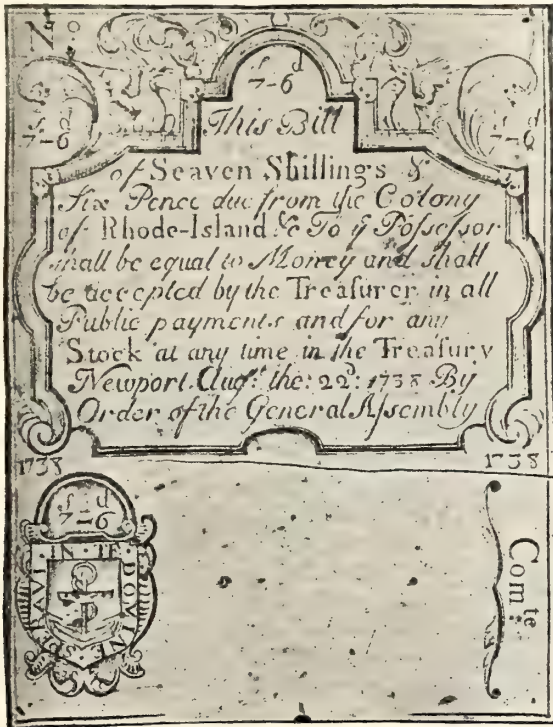 No
s d
7-6
s d
7-6
s d
7-6
This Bill
of Seaven Shillings &
Six Pence due from the Colony
of Rhode-Island &c To ye Poſseſsor
shall be equal to Money and shall
be accepted by the Treaſurer in all
Public payments and for any
Stock at any time in the Treaſury
Newport Augt. the: 22d: 1738 By
Order of the General Aſsembly
1738
1738
s d
7-6
IN TE DOMINE SPERAVI
Comte.